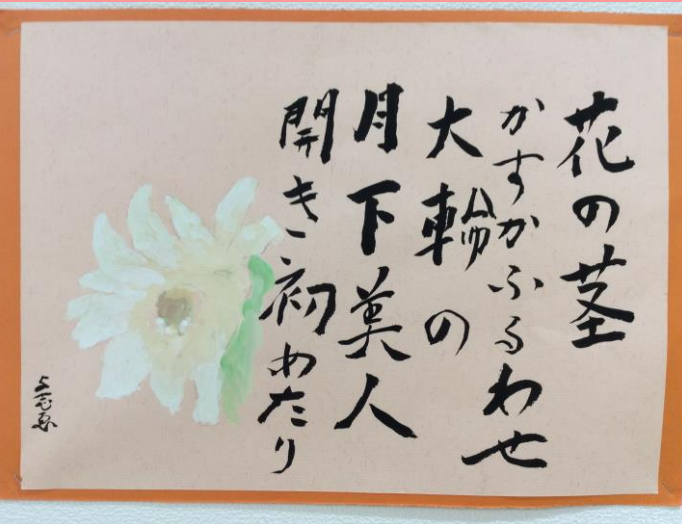 花の茎
かすかふるわせ
大輪の
月下美人
開き初めたり